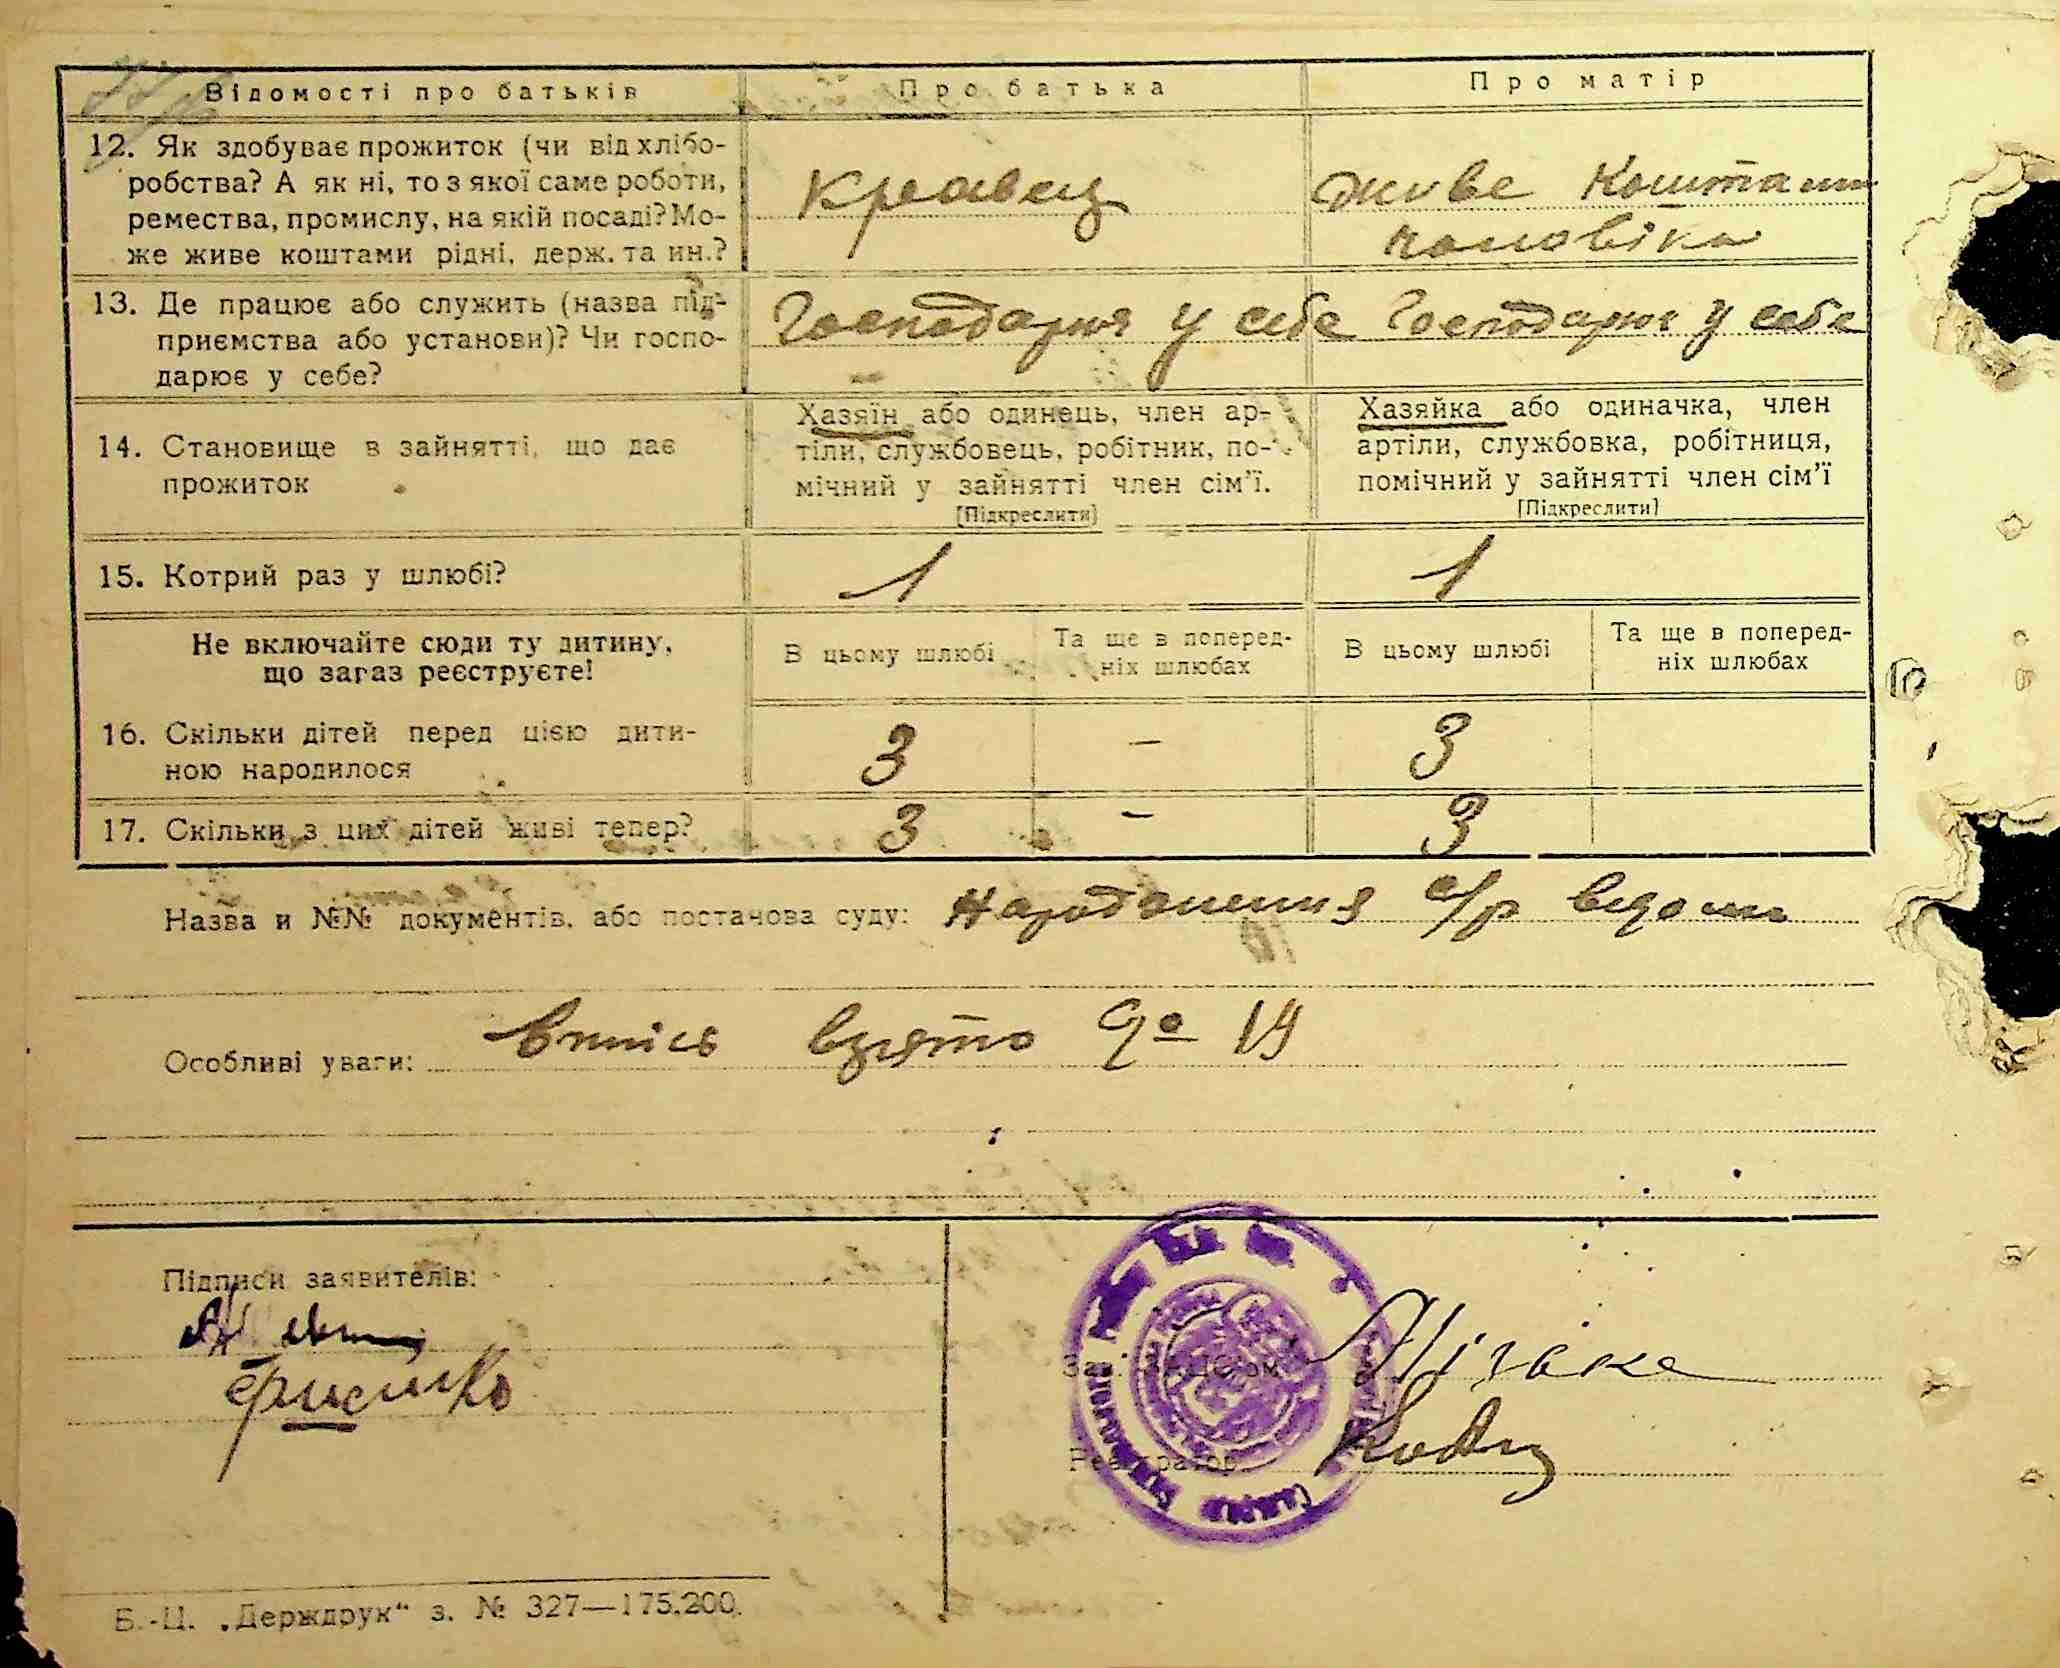 Відомості про батьків
Про батька
Про матір
12. Як здобуває прожиток (чи від хлібо-
робства? А як ні, то з якої саме роботи,
ремества, промислу, на якій посаді? Мо-
же живе коштами рідні, держ. та ин.?
кравец
живе кошта
чоловіка
13. Де працює або служить (назва під-
приємства або установи)? Чи госпо-
дарює у себе?
Господарює у себе
Господарює у себе
14. Становище в зайнятті, що дає
прожиток
Хазяїн або одинець, член ар-
тіли, службовець, робітник, по-
мічний у зайнятті член сім'ї.
[Підкреслити]
Хазяйка або одиначка, член
артіли, службовка, робітниця,
помічний у зайнятті член сім'ї
[Підкреслити]
15. Котрий раз у шлюбі?
1
1
Не включайте сюди ту дитину,
що зараз реєструєте!
В цьому шлюбі
Та ще в поперед-
ніх шлюбах
В цьому шлюбі
Та ще в поперед-
ніх шлюбах
16. Скільки дітей перед цією дити-
ною народилося
3 – 3
17. Скільки з цих дітей живі тепер?
3 – 3
Назва и №№ документів, або постанова суду: Народження с/р відомо
Особливі уваги: виписв взято до 19
Підписи заявителів:
Зав.
Реєстратор
Б.-Ц. „Держдрук“ з. № 327—175.200.